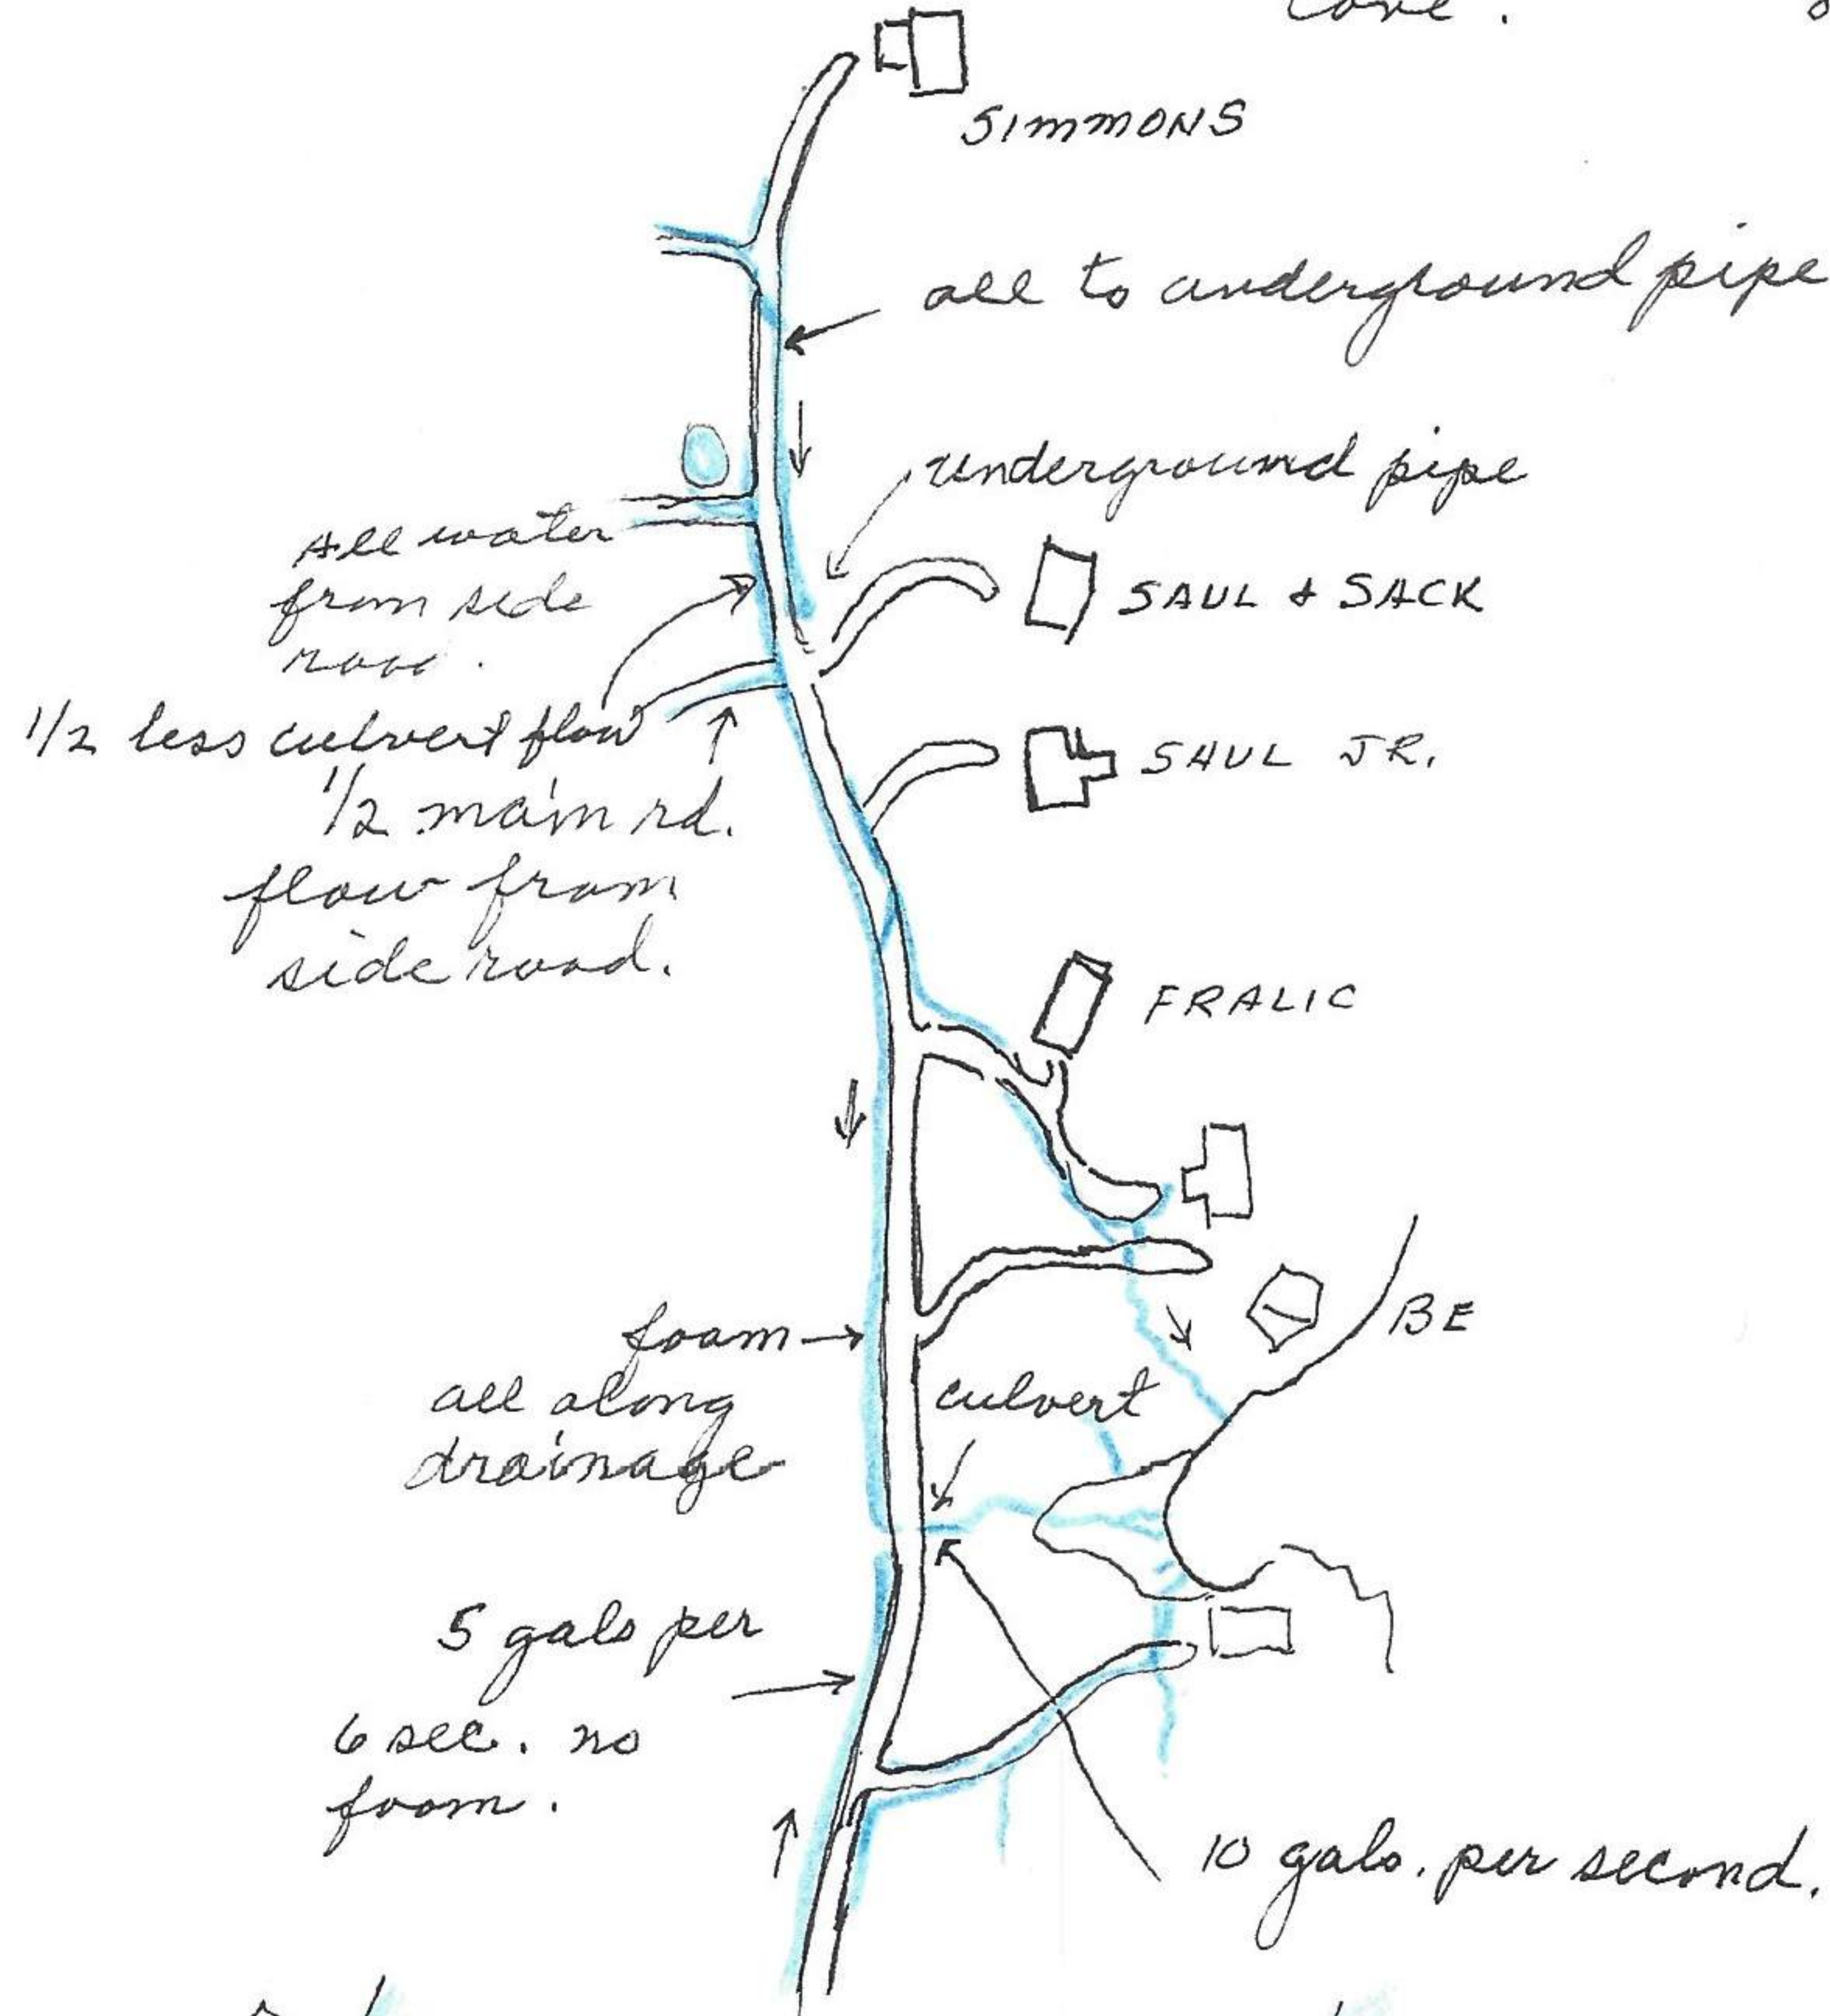 cove.
SIMMONS
all to underground pipe
underground pipe
All water
from side
road.
SAUL & SACK
1/2 less culvert flow
1/2 main rd.
flow from
side road.
SAUL JR.
FRALIC
BE
foam
all along
drainage
culvert
5 gals per
6 sec. no
foam.
10 gals. per second.